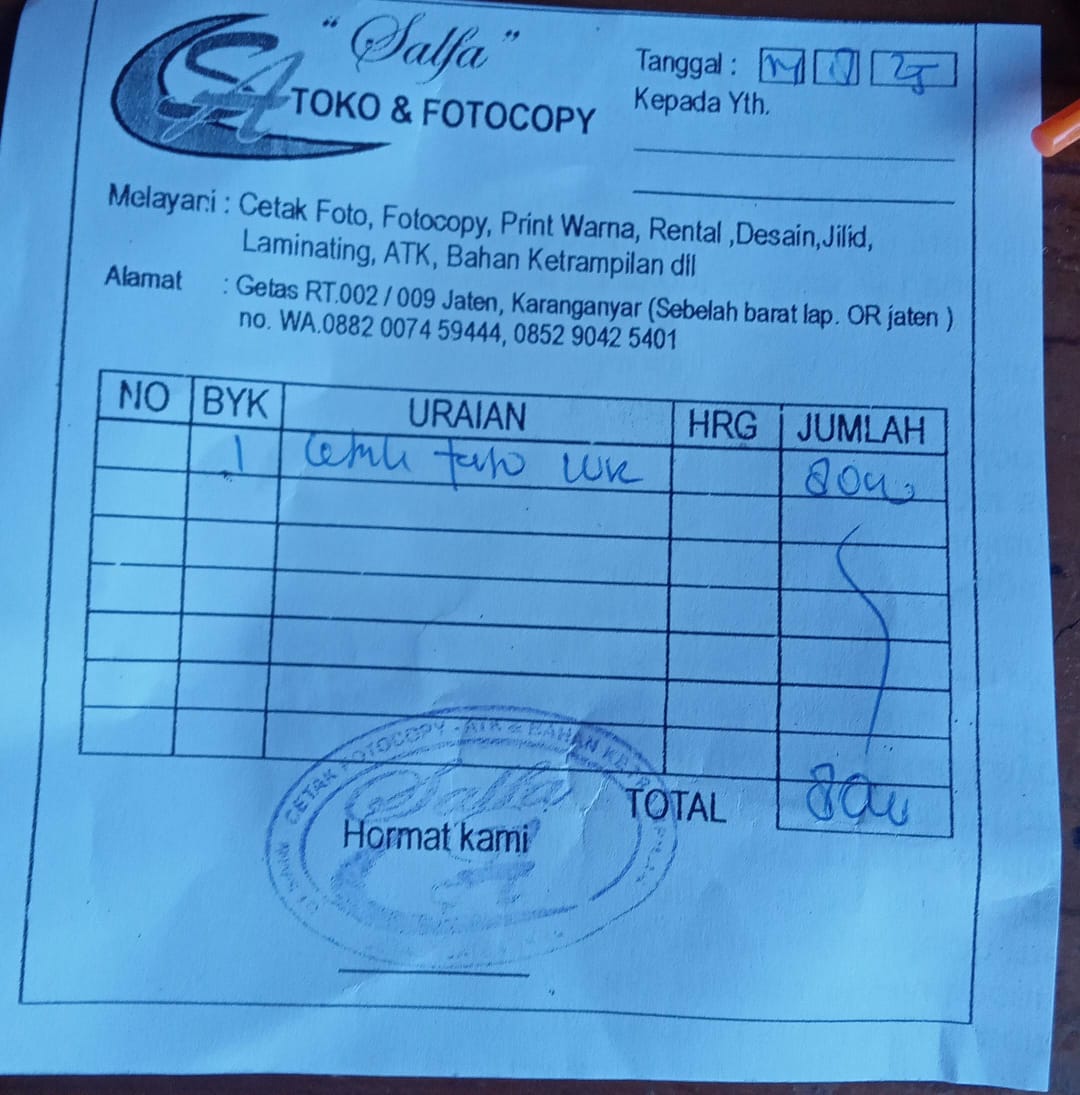 "Salfa"
TOKO & FOTOCOPY
Tanggal : 25
Kepada Yth.
Melayani : Cetak Foto, Fotocopy, Print Warna, Rental ,Desain,Jilid,
Laminating, ATK, Bahan Ketrampilan dll
Alamat : Getas RT.002 / 009 Jaten, Karanganyar (Sebelah barat lap. OR jaten )
no. WA.0882 0074 59444, 0852 9042 5401
NO BYK URAIAN HRG JUMLAH
1 Cetak foto
TOTAL
CETAK FOTOCOPY - ATK & BAHAN
Salfa
Hormat kami